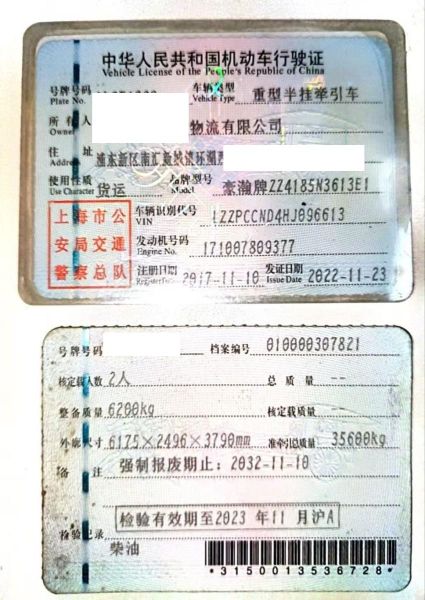 中华人民共和国机动车行驶证
Vehicle License of the People's Republic of China
号牌号码 车辆类型 重型半挂牵引车
Plate No. Vehicle Type
所有人 物流有限公司
Owner
住址 浦东新区南汇新城镇环湖西
Address
使用性质 货运 品牌型号 豪瀚牌ZZ4185N3613E1
Use Character Model
上海市公安局交通警察总队
车辆识别代号 LZZPCCND4HJ096613
VIN
发动机号码 171007809377
Engine No.
注册日期 2017-11-10 发证日期 2022-11-23
Register Date Issue Date
号牌号码 档案编号 010000307821
核定载人数 2人 总质量 --
整备质量 6200kg 核定载质量 --
外廓尺寸 6175×2496×3790mm 准牵引总质量 35600kg
备注 强制报废期止:2032-11-10
检验有效期至2023 年11 月沪A
检验记录
柴油
*3150013536728*